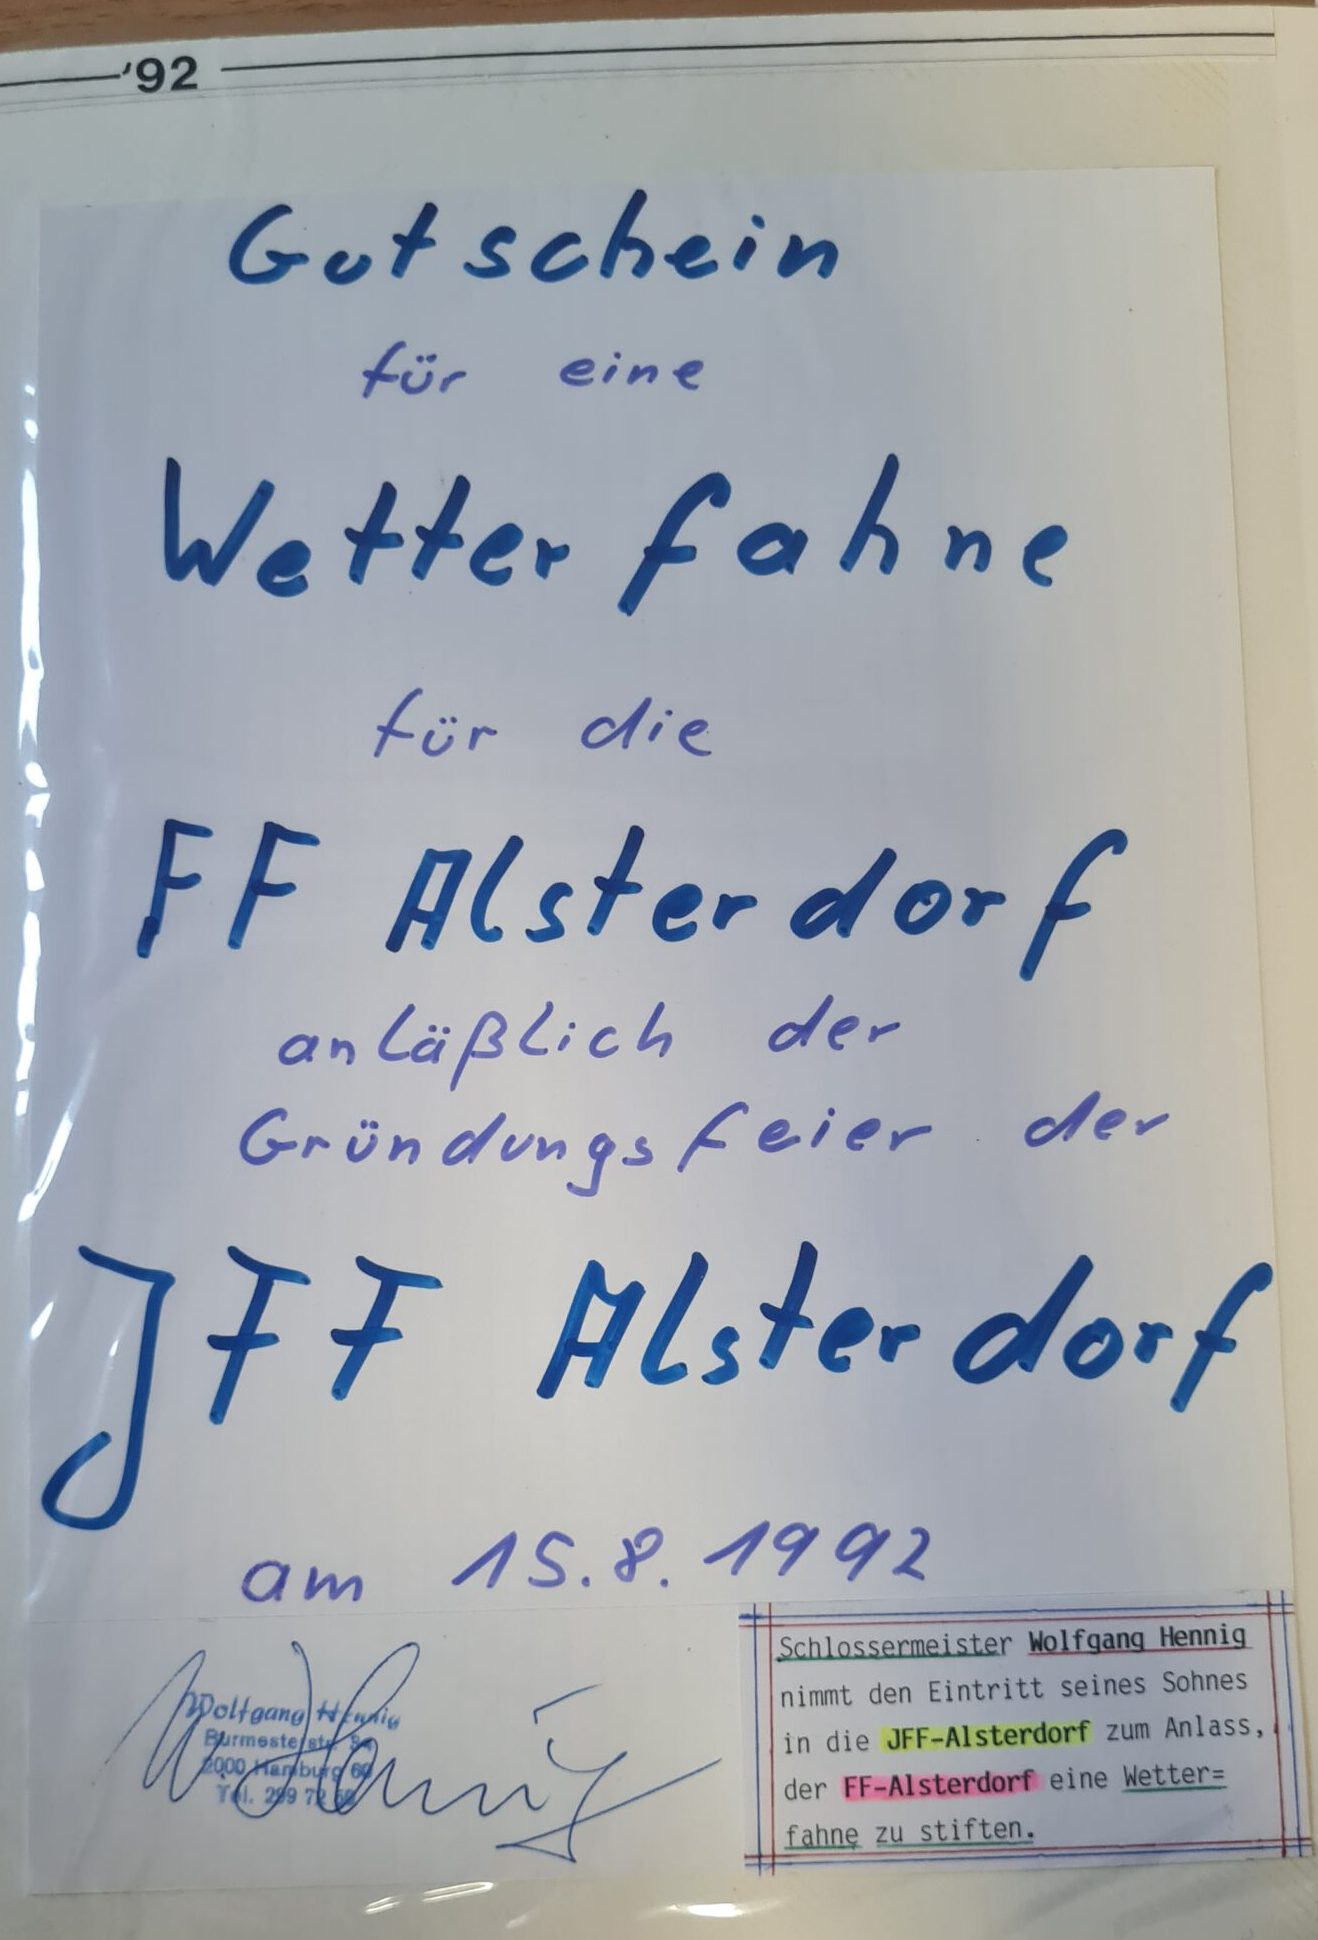 '92
Gutschein
für eine
Wetterfahne
für die
FF Alsterdorf
anläßlich der
Gründungsfeier der
JFF Alsterdorf
am 15.8.1992
Wolfgang Hennig
Burmesterstr.
2000 Hamburg 60
Tel. 299 72
Schlossermeister Wolfgang Hennig
nimmt den Eintritt seines Sohnes
in die JFF-Alsterdorf zum Anlass,
der FF-Alsterdorf eine Wetter=
fahne zu stiften.